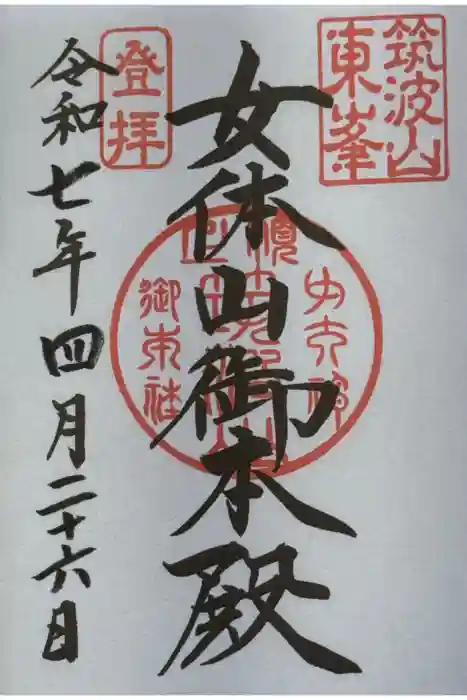 筑波山
東峯
女体山御本殿
登拝
令和七年四月二十六日